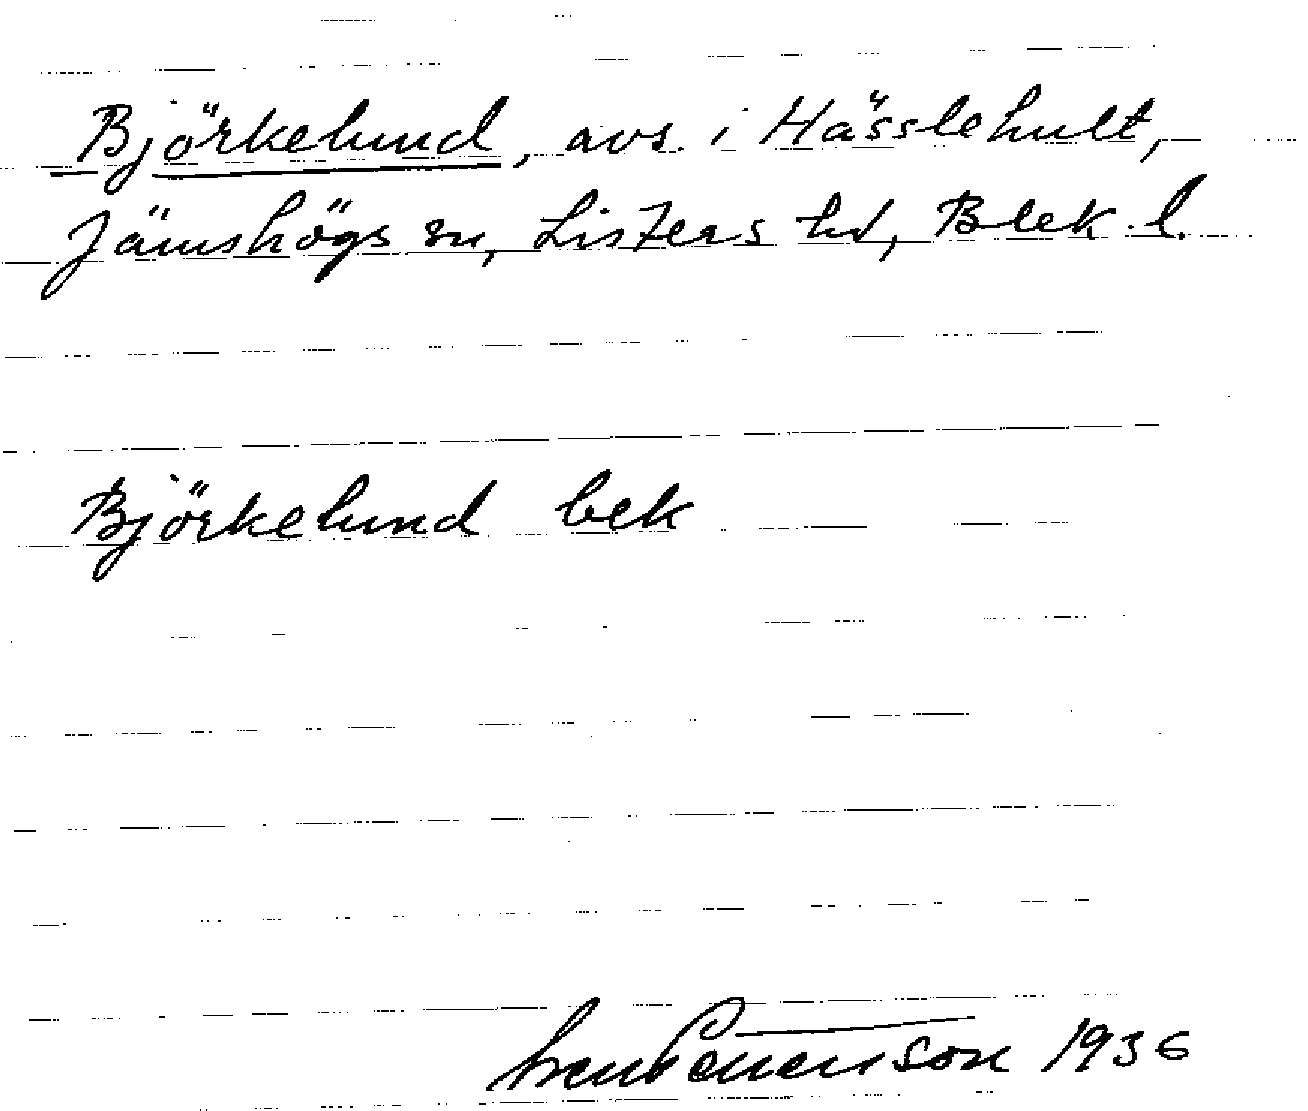 Björkelund, avs. i Hässlehult,
Jämshögs sn, Listers hd, Blek. l.
Björkelund bek
1936